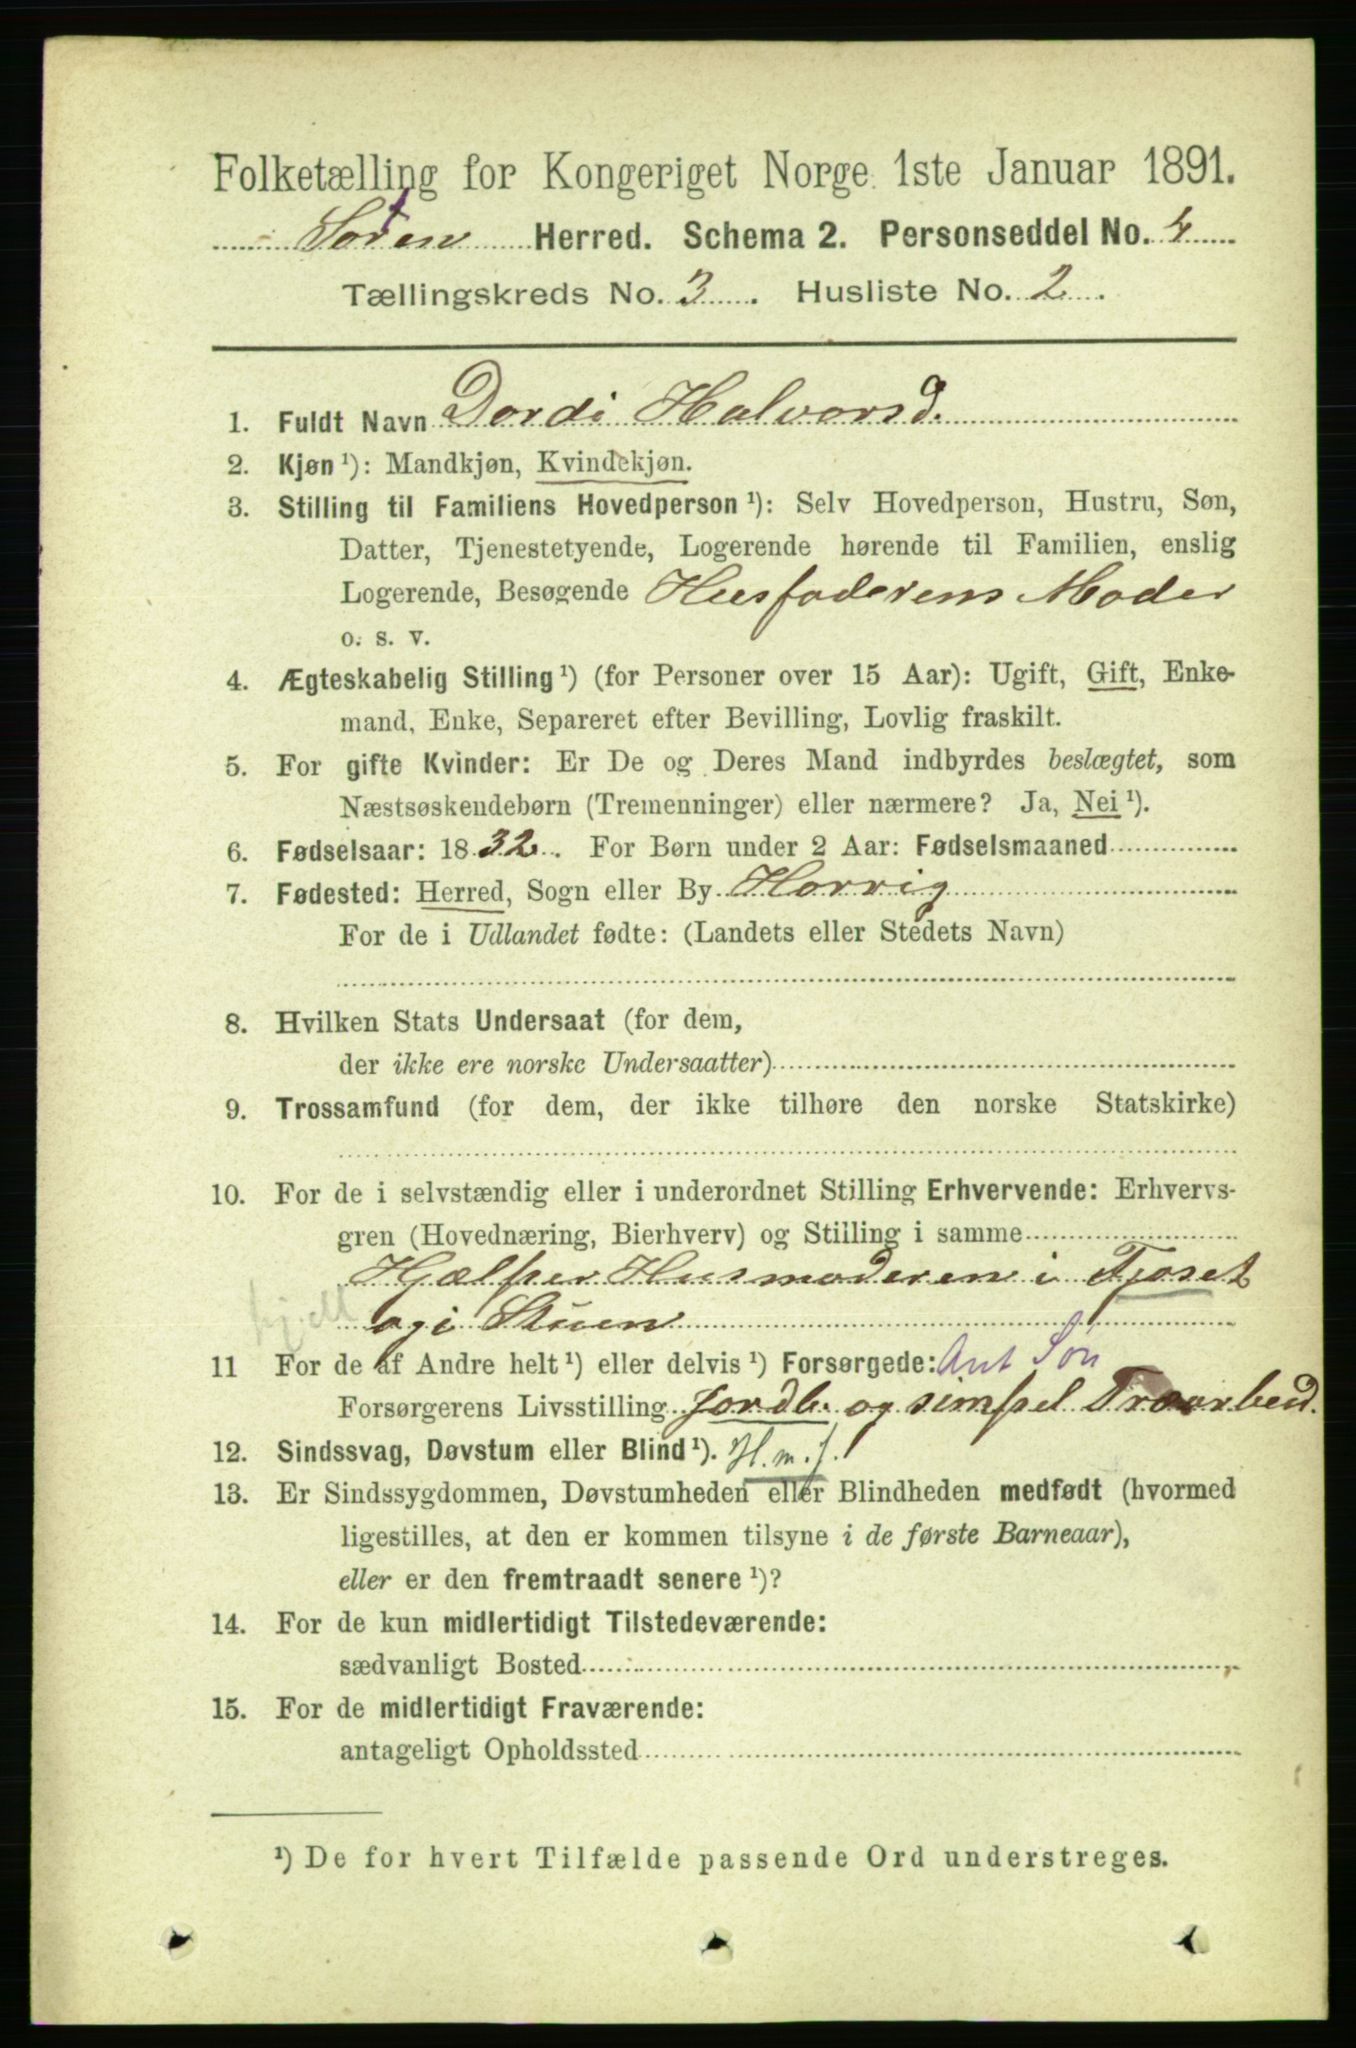 Folketælling for Kongeriget Norge 1ste Januar 1891.
Herred. Schema 2. Personseddel No. 4
Tællingskreds No. 3. Husliste No. 2.
1. Fuldt Navn Dordi Halvorsd.
2. Kjøn ¹): Mandkjøn, Kvindekjøn.
3. Stilling til Familiens Hovedperson ¹): Selv Hovedperson, Hustru, Søn,
Datter, Tjenestetyende, Logerende hørende til Familien, enslig
Logerende, Besøgende Husfaderens Moder
o. s. v.
4. Ægteskabelig Stilling ¹) (for Personer over 15 Aar): Ugift, Gift, Enke-
mand, Enke, Separeret efter Bevilling, Lovlig fraskilt.
5. For gifte Kvinder: Er De og Deres Mand indbyrdes beslægtet, som
Næstsøskendebørn (Tremenninger) eller nærmere? Ja, Nei ¹).
6. Fødselsaar: 1832. For Børn under 2 Aar: Fødselsmaaned
7. Fødested: Herred, Sogn eller By Horrig
For de i Udlandet fødte: (Landets eller Stedets Navn)
8. Hvilken Stats Undersaat (for dem,
der ikke ere norske Undersaatter)
9. Trossamfund (for dem, der ikke tilhøre den norske Statskirke)
10. For de i selvstændig eller i underordnet Stilling Erhvervende: Erhvervs-
gren (Hovednæring, Bierhverv) og Stilling i samme
Hjælper Husmoderen i Fjøset
og i Stuen
11 For de af Andre helt ¹) eller delvis ¹) Forsørgede: Ant Søn
Forsørgerens Livsstilling Jordb. og simpel Træarbeid.
12. Sindssvag, Døvstum eller Blind ¹). H. m. f.
13. Er Sindssygdommen, Døvstumheden eller Blindheden medfødt (hvormed
ligestilles, at den er kommen tilsyne i de første Barneaar),
eller er den fremtraadt senere ¹)?
14. For de kun midlertidigt Tilstedeværende:
sædvanligt Bosted
15. For de midlertidigt Fraværende:
antageligt Opholdssted
¹) De for hvert Tilfælde passende Ord understreges.